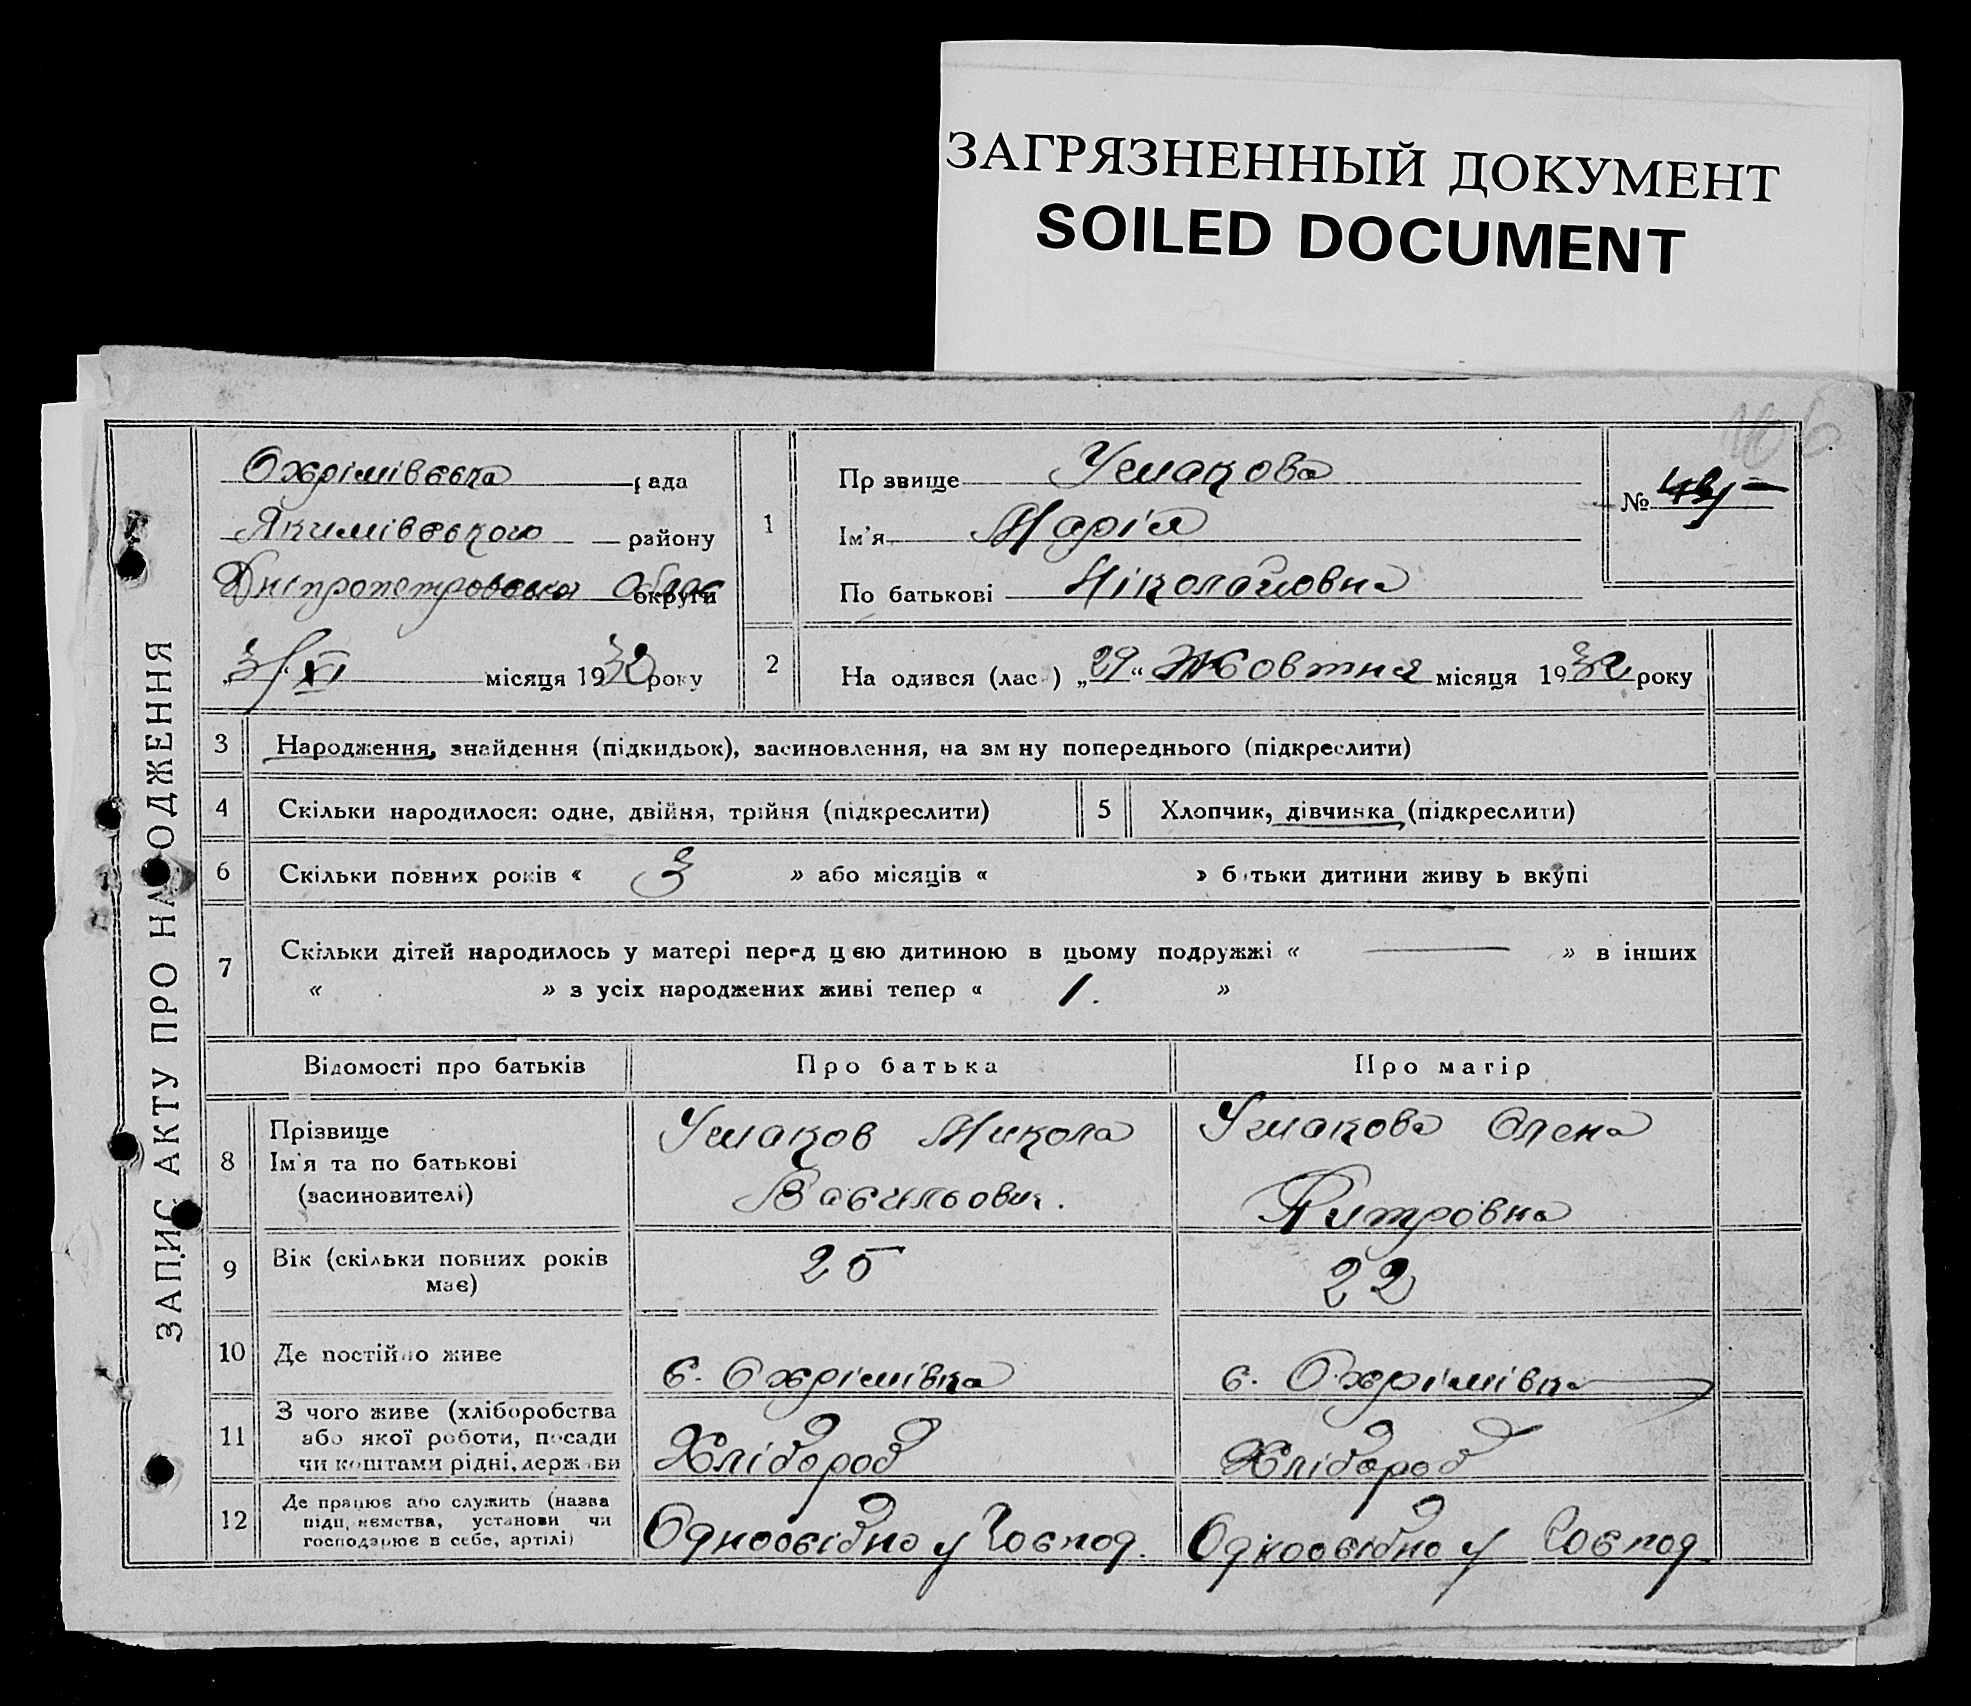 ЗАГРЯЗНЕННЫЙ ДОКУМЕНТ
SOILED DOCUMENT
ЗАПИС АКТУ ПРО НАРОДЖЕННЯ
Охрімівська рада
Якимівського району
Дніпропетровська округи
3/XI місяця 1932 року
1
Пр звище Ушакова
Ім'я Марія
По батькові Ніколайовна
№
2 На одився (лас ) „29“ Жовтня місяця 1932 року
3 Народження, знайдення (підкидьок), засиновлення, на зм ну попереднього (підкреслити)
4 Скільки народилося: одне, двійня, трійня (підкреслити) 5 Хлопчик, дівчинка (підкреслити)
6 Скільки повних років « 3 » або місяців « » б тьки дитини живу ь вкупі
7 Скільки дітей народилось у матері перед цею дитиною в цьому подружжі « — » в інших
« » з усіх народжених живі тепер « 1. »
Відомості про батьків Про батька Про матір
8 Прізвище
Ім'я та по батькові
(засиновителі)
Ушаков Микола
Васильович.
Ушакова Олена
Дитровна
9 Вік (скільки повних років
має)
25 22
10 Де постійно живе с. Охрімівка с. Охрімівка
11 З чого живе (хліборобства
або якої роботи, посади
чи коштами рідні, держави
Хлібороб Хлібороб
12 Де працює або служить (назва
підп, иємства, установи чи
господарює в себе, артілі)
Одноосібно у Господ. Одноосібно у Господ.